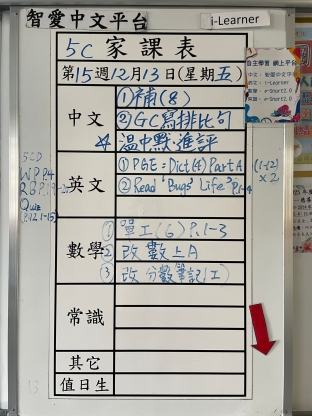 智愛中文平台
i-Learner
5C 家課表
第15週12月13日(星期五)
中文
①補(8)
②GC寫排比句
☆ 溫中默進評
英文
①PGE = Dict(4) Part A (1-12)
②Read "Bugs' Life" P.1-4 x 2
數學
①單工(6) P.1-3
②改數上A
③改分數筆記(工)
常識
其它
值日生
自主學習 網上平台
中文：智愛中文平台
英文：i-Learner
WP P.4
Quiz